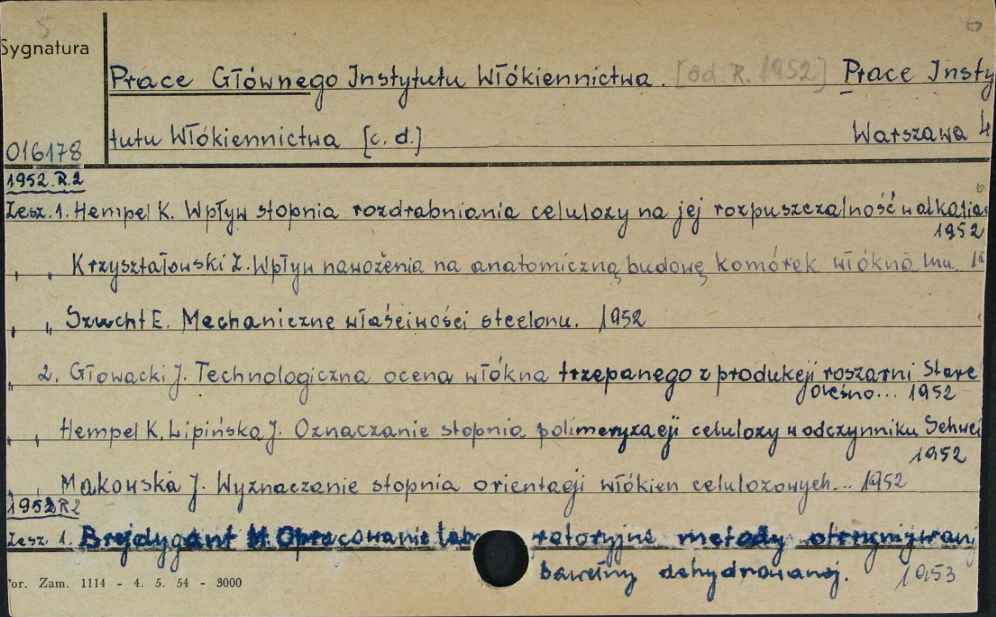 5 6
Sygnatura
Prace Głównego Instytutu Włókiennictwa. [od R. 1952] Prace Insty
tutu Włókiennictwa [c. d.] Warszawa 4
016178
1952. R.2
Zesz. 1. Hempel K. Wpływ stopnia rozdrabniania celulozy na jej rozpuszczalność w alkalia
1952
" " Krzyształowski Z. Wpływ nawożenia na anatomiczną budowę komórek włókna lnu. 19
" " Szucht E. Mechaniczne właściwości steelonu. 1952
" 2. Głowacki J. Technologiczna ocena włókna trzepanego z produkcji roszarni Stare
Oleśno... 1952
" " Hempel K. Lipińska J. Oznaczanie stopnia polimeryzacji celulozy w odczynniku Schwei
1952
" " Makowska J. Wyznaczanie stopnia orientacji włókien celulozowych... 1952
1952 R2
Zesz 1. Brejdygant M. Opracowanie labo ratoryjne metody otrzymywany
bawełny dehydrowanej. 1953
or. Zam. 1114 - 4. 5. 54 - 3000